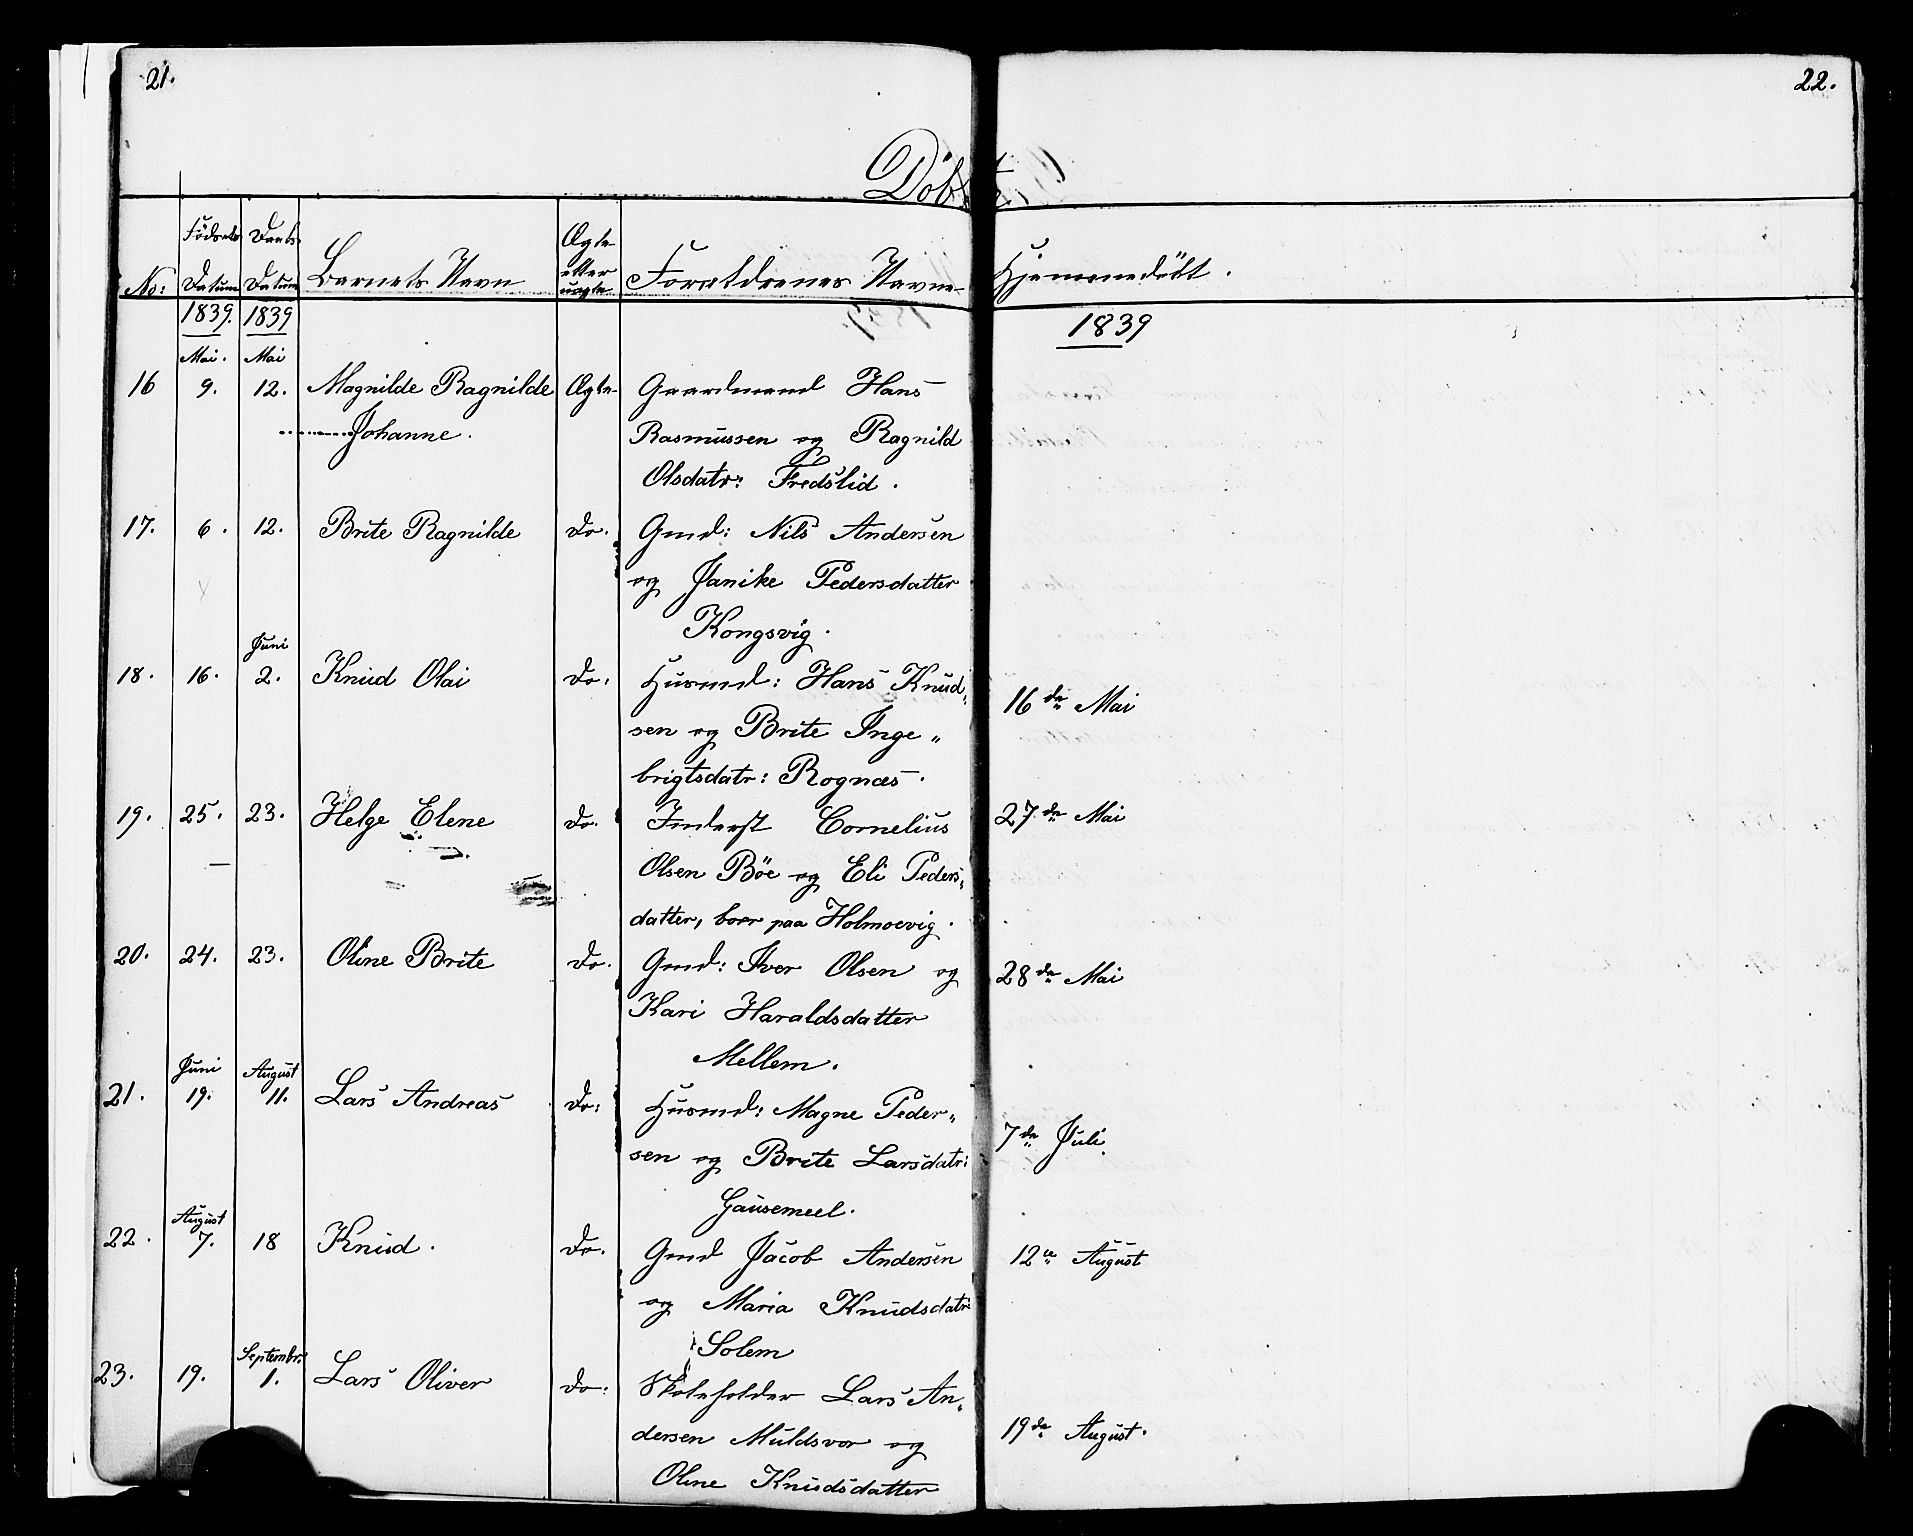 21.
22.
Døbte
No:
Fødsels Datum
Daabs Datum
Barnets Navn
Ægte eller uægte
Forældrenes Navne
Hjemmedøbt.
1839. 1839
1839
Mai. Mai
16 9. 12. Magnilde Ragnilde Ægte Gaardmand Hans
Johanne. Rasmussen og Ragnild
Olsdatr: Fredslid.
17. 6. 12. Brite Ragnilde Do. Gmd: Nils Andersen
og Janike Pedersdatter
Kongsvig.
Juni
18. 16. 2. Knud Olai Do: Husmd: Hans Knud„ 16de Mai
sen og Brite Inge„
brigtsdatr: Rognæs.
19. 25. 23. Helge Elene Do. Inderst Cornelius 27de Mai
Olsen Böe og Eli Peders„
datter, boer paa Holmoevig.
20. 24. 23. Oline Brite Do. Gmd: Iver Olsen og 28de Mai
Kari Haraldsdatter
Mellem.
Juni August
21. 19. 11. Lars Andreas Do: Husmd: Magne Peder„ 7de Juli.
sen og Brite Larsdatr:
Gausemeel.
August
22. 7. 18 Knud. Do. Gmd Jacob Andersen 12te August
og Maria Knudsdatr:
Solem
Septembr:
23. 19. 1. Lars Oliver Do: Skoleholder Lars An„ 19de August.
dersen Muldsvor og
Oline Knudsdatter